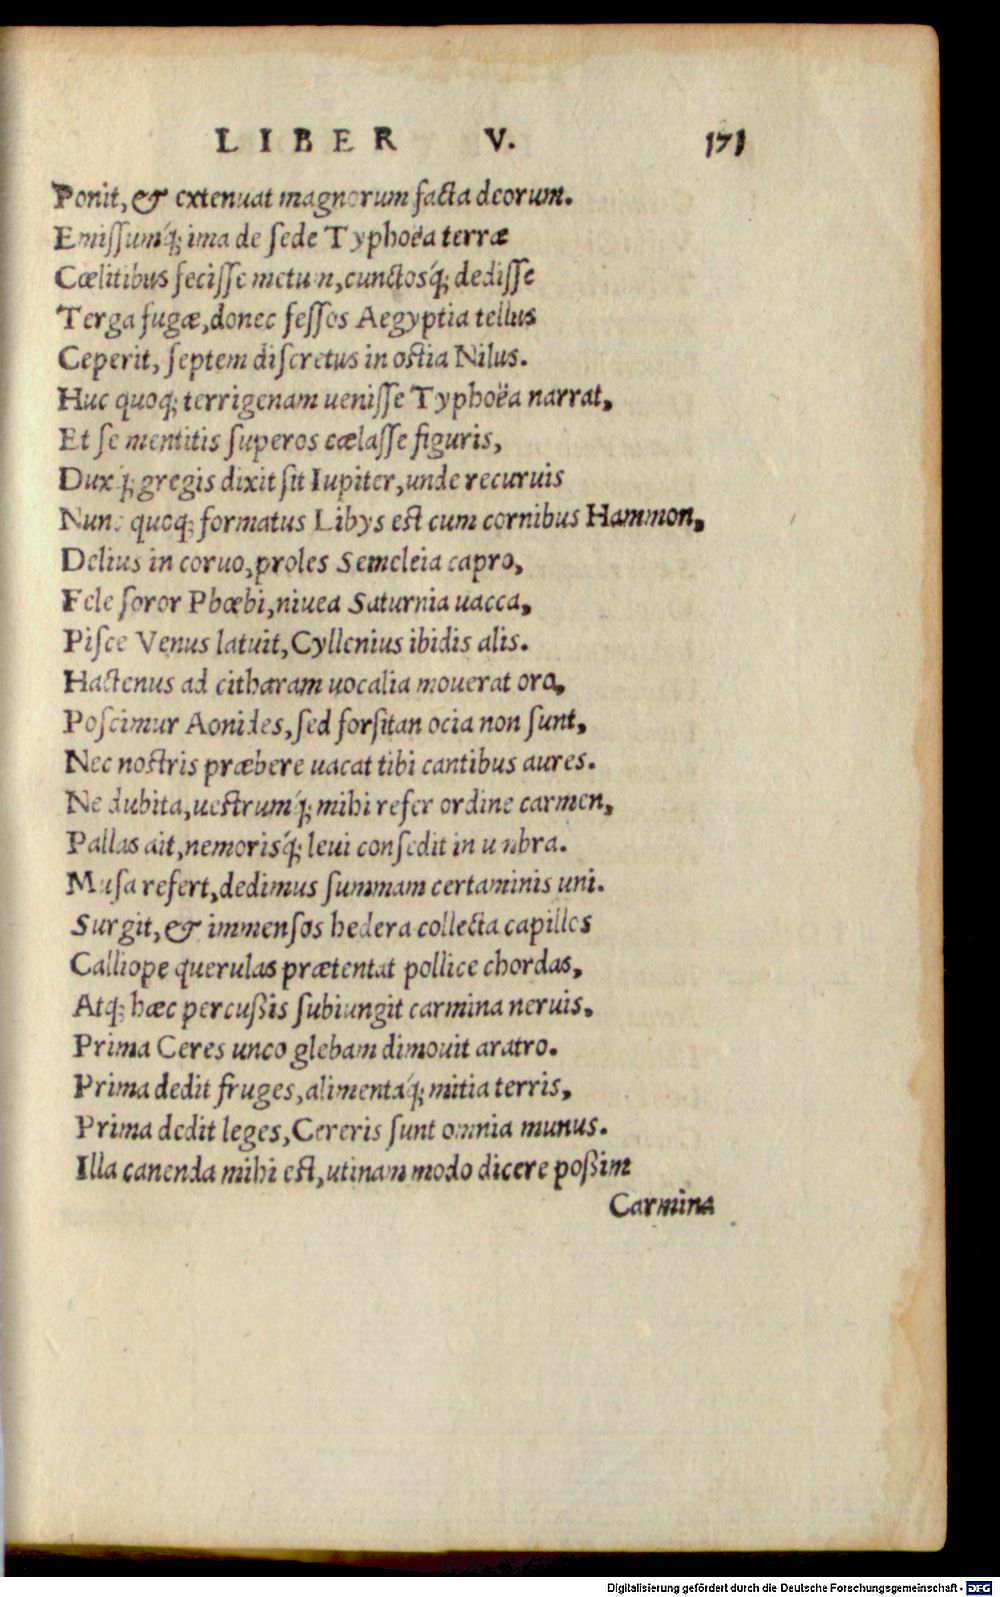 LIBER V. 171
Ponit, & extenuat magnorum facta deorum.
Emiſſumq́; ima de ſede Typhoëa terræ
Cœlitibus feciſſe metum, cunctosq́; dediſſe
Terga fugæ, donec feſſos Aegyptia tellus
Ceperit, ſeptem diſcretus in oſtia Nilus.
Huc quoq; terrigenam ueniſſe Typhoëa narrat,
Et ſe mentitis ſuperos cælaſſe figuris,
Duxq́; gregis dixit fit Iupiter, unde recuruis
Nunc quoq; formatus Libys eſt cum cornibus Hammon,
Delius in coruo, proles Semeleia capro,
Fele ſoror Phœbi, niuea Saturnia uacca,
Piſce Venus latuit, Cyllenius ibidis alis.
Hactenus ad citharam uocalia mouerat ora,
Poſcimur Aonides, ſed forſitan ocia non ſunt,
Nec noſtris præbere uacat tibi cantibus aures.
Ne dubita, ueſtrumq́; mihi refer ordine carmen,
Pallas ait, nemorisq́; leui conſedit in umbra.
Muſa refert, dedimus ſummam certaminis uni.
Surgit, & immenſos hedera collecta capillos
Calliope querulas prætentat pollice chordas,
Atq; hæc percuſsis ſubiungit carmina neruis.
Prima Ceres unco glebam dimouit aratro.
Prima dedit fruges, alimentaq́; mitia terris,
Prima dedit leges, Cereris ſunt omnia munus.
Illa canenda mihi eſt, utinam modo dicere poſsim
Carmina
Digitalisierung gefördert durch die Deutsche Forschungsgemeinschaft - DFG